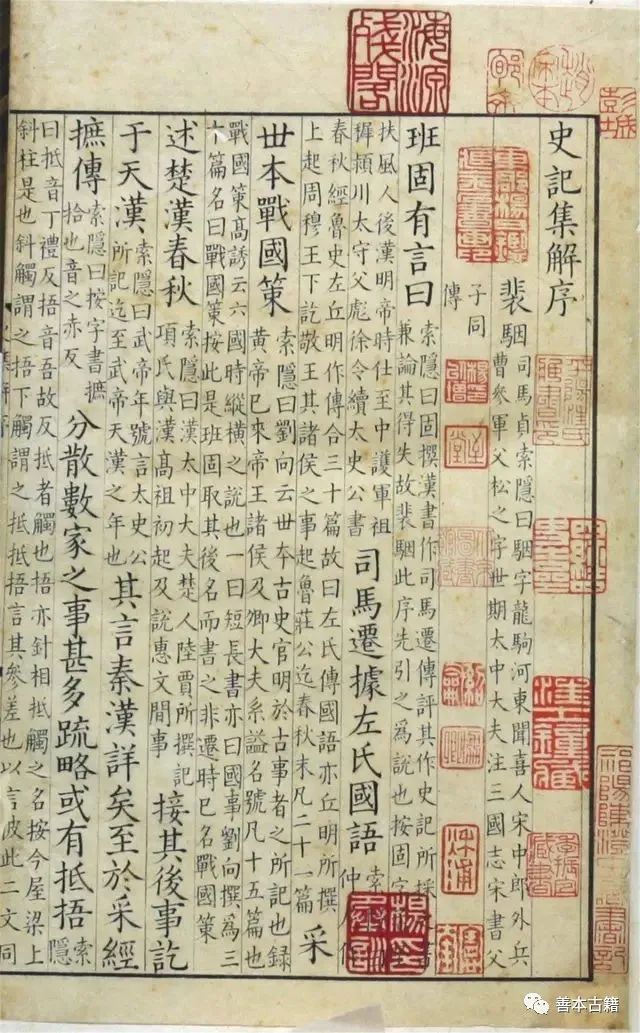 海源殘閣
彭城
史記集解序
裴駰
司馬貞索隱曰駰字龍駒河東聞喜人宋中郎外兵
曹參軍父松之字世期太中大夫注三國志宋書父
子同
傳
班固有言曰
索隱曰固撰漢書作司馬遷傳評其作史記所採書
兼論其得失故裴駰此序先引之為說也按固字
扶風人後漢明帝時仕至中護軍祖
穉潁川太守父彪徐令續太史公書
司馬遷據左氏國語
索
仲作
春秋經魯史左丘明作傳合三十篇故曰左氏傳國語亦丘明所撰
上起周穆王下訖敬王其諸侯之事起魯莊公迄春秋末凡二十一篇
采
世本戰國策
索隱曰劉向云世本古史官明於古事者之所記也録
黃帝已來帝王諸侯及卿大夫系謚名號凡十五篇也
戰國策高誘云六國時縱橫之說也一曰短長書亦曰國事劉向撰為三
十篇名曰戰國策按此是班固取其後名而書之非遷時已名戰國策
述楚漢春秋
索隱曰漢太中大夫楚人陸賈所撰記
項氏與漢高祖初起及說惠文間事
接其後事訖
于天漢
索隱曰武帝年號言太史公
所記迄至武帝天漢之年也
其言秦漢詳矣至於采經
摭傳
索隱曰按字書摭
拾也音之赤反
分散數家之事甚多疏略或有抵捂
索
隱
曰抵音丁禮反捂音吾故反抵者觸也捂亦針相抵觸之名按今屋梁上
斜柱是也斜觸謂之捂下觸謂之抵抵捂言其參差也以言彼此二文同
善本古籍